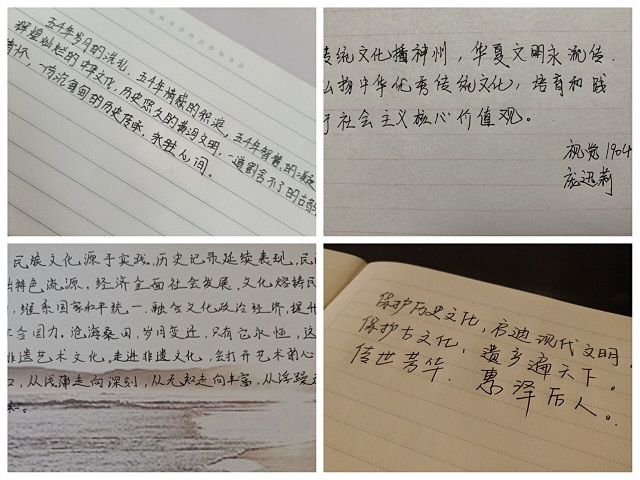 五千年岁月的洗礼，五千年情感的积淀，五千年智慧的凝
辉煌灿烂的中华文化，历史悠久的黄河文明，一道割舍不了的古
一份沉甸甸的历史传承，永驻人间。
传统文化播神州，华夏文明永流传.
弘扬中华优秀传统文化，培育和践
于社会主义核心价值观。
视觉1904
庞迅莉
民族文化源于实践.历史记录延续表现.民
特色流源、经济全面社会发展.文化熔铸民
，维系国家和平统一.融合文化政治经济.提升
合国力。沧海桑田，岁月变迁，只有它永恒，这
非遗艺术文化。走进非遗文化，去打开艺术的心
口，从浅薄走向深刻，从无知走向丰富，从浮躁
。
保护历史文化，启迪现代文明.
保护古文化，遗乡遍天下。
传世芳华. 惠泽后人。